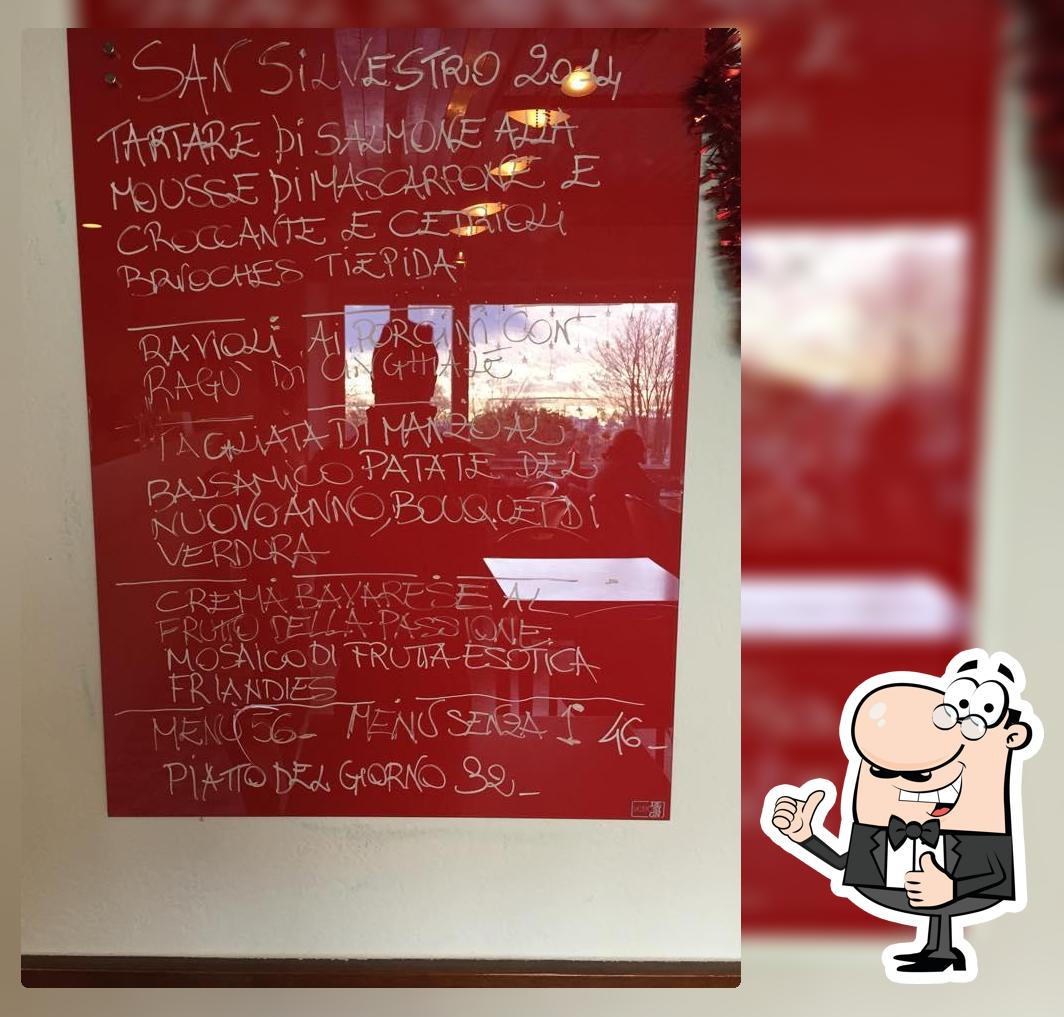 SAN SILVESTRO 2014
TARTARE DI SALMONE ALLA
MOUSSE DI MASCARPONE E
CROCCANTE E CETRIOLI
BRIOCHES TIEPIDA
RAVIOLI AI PORCINI CON
RAGU' DI CINGHIALE
TAGLIATA DI MANZO AL
BALSAMICO PATATE DEL
NUOVO ANNO, BOUQUET DI
VERDURA
CREMA BAVARESE AL
FRUTTO DELLA PASSIONE,
MOSAICO DI FRUTTA ESOTICA
FRIANDIES
MENU 56.- MENU SENZA 1 46.-
PIATTO DEL GIORNO 32.-